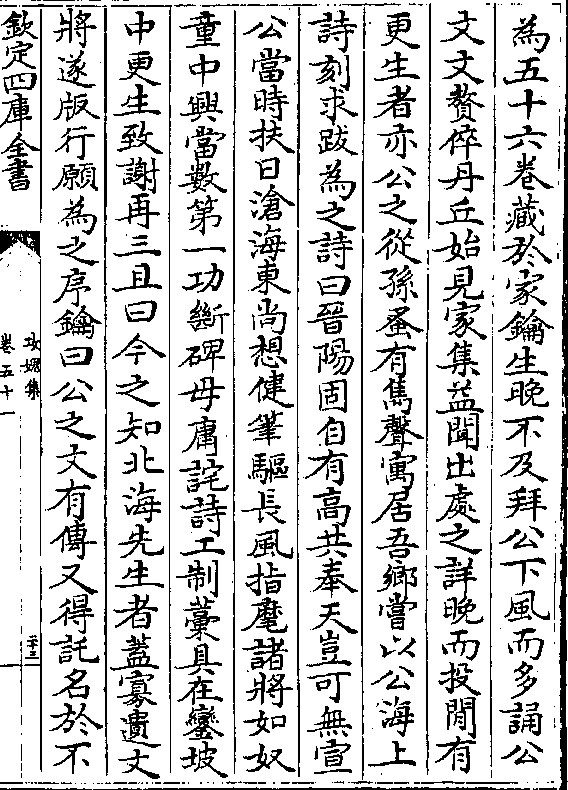 為五十六卷藏於家鑰生晚不及拜公下風而多誦公
文丈贅倅丹丘始見家集益聞出處之詳晚而投閒有
更生者亦公之從孫蚤有雋聲寓居吾鄉嘗以公海上
詩刻求跋為之詩曰晉陽固自有高共奉天豈可無宣
公當時扶日滄海東尚想健筆驅長風指麾諸將如奴
童中興當數第一功斷碑毋庸詫詩工制藁具在鑾坡
中更生致謝再三且曰今之知北海先生者蓋寡遺文
將遂版行願為之序鑰曰公之文有傳又得託名於不
欽定四庫全書
攻媿集
卷五十一
二十三